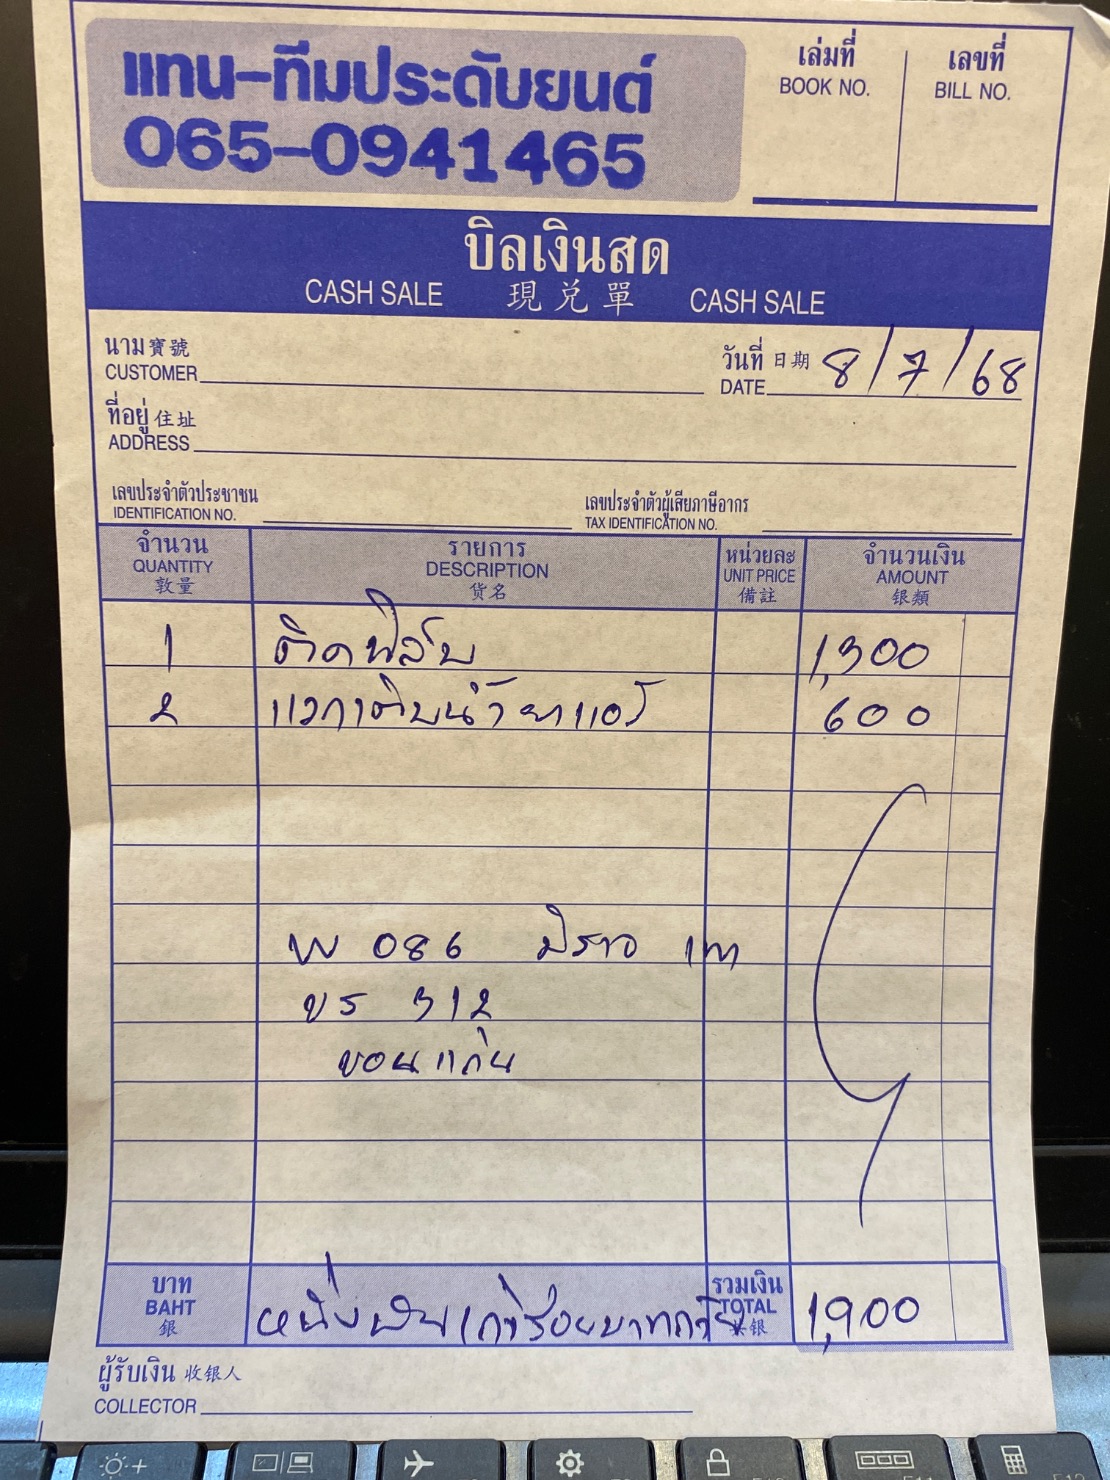 แทน-ทีมประดับยนต์
065-0941465
เล่มที่ เลขที่
BOOK NO. BILL NO.
บิลเงินสด
CASH SALE 現兌單 CASH SALE
นาม寶號 วันที่ 日期 8/7/68
CUSTOMER DATE
ที่อยู่ 住址
ADDRESS
เลขประจำตัวประชาชน เลขประจำตัวผู้เสียภาษีอากร
IDENTIFICATION NO. TAX IDENTIFICATION NO.
จำนวน รายการ หน่วยละ จำนวนเงิน
QUANTITY DESCRIPTION UNIT PRICE AMOUNT
敦量 货名 備註 银類
1 ติดฟิล์ม 1,300
2 แวกเติมน้ำยาแอร์ 600
W 086 มิราจ เทา
ขร 312
ขอนแก่น
บาท รวมเงิน
BAHT หนึ่งพันเก้าร้อยบาทถ้วน TOTAL 1,900
銀 银
ผู้รับเงิน 收银人
COLLECTOR